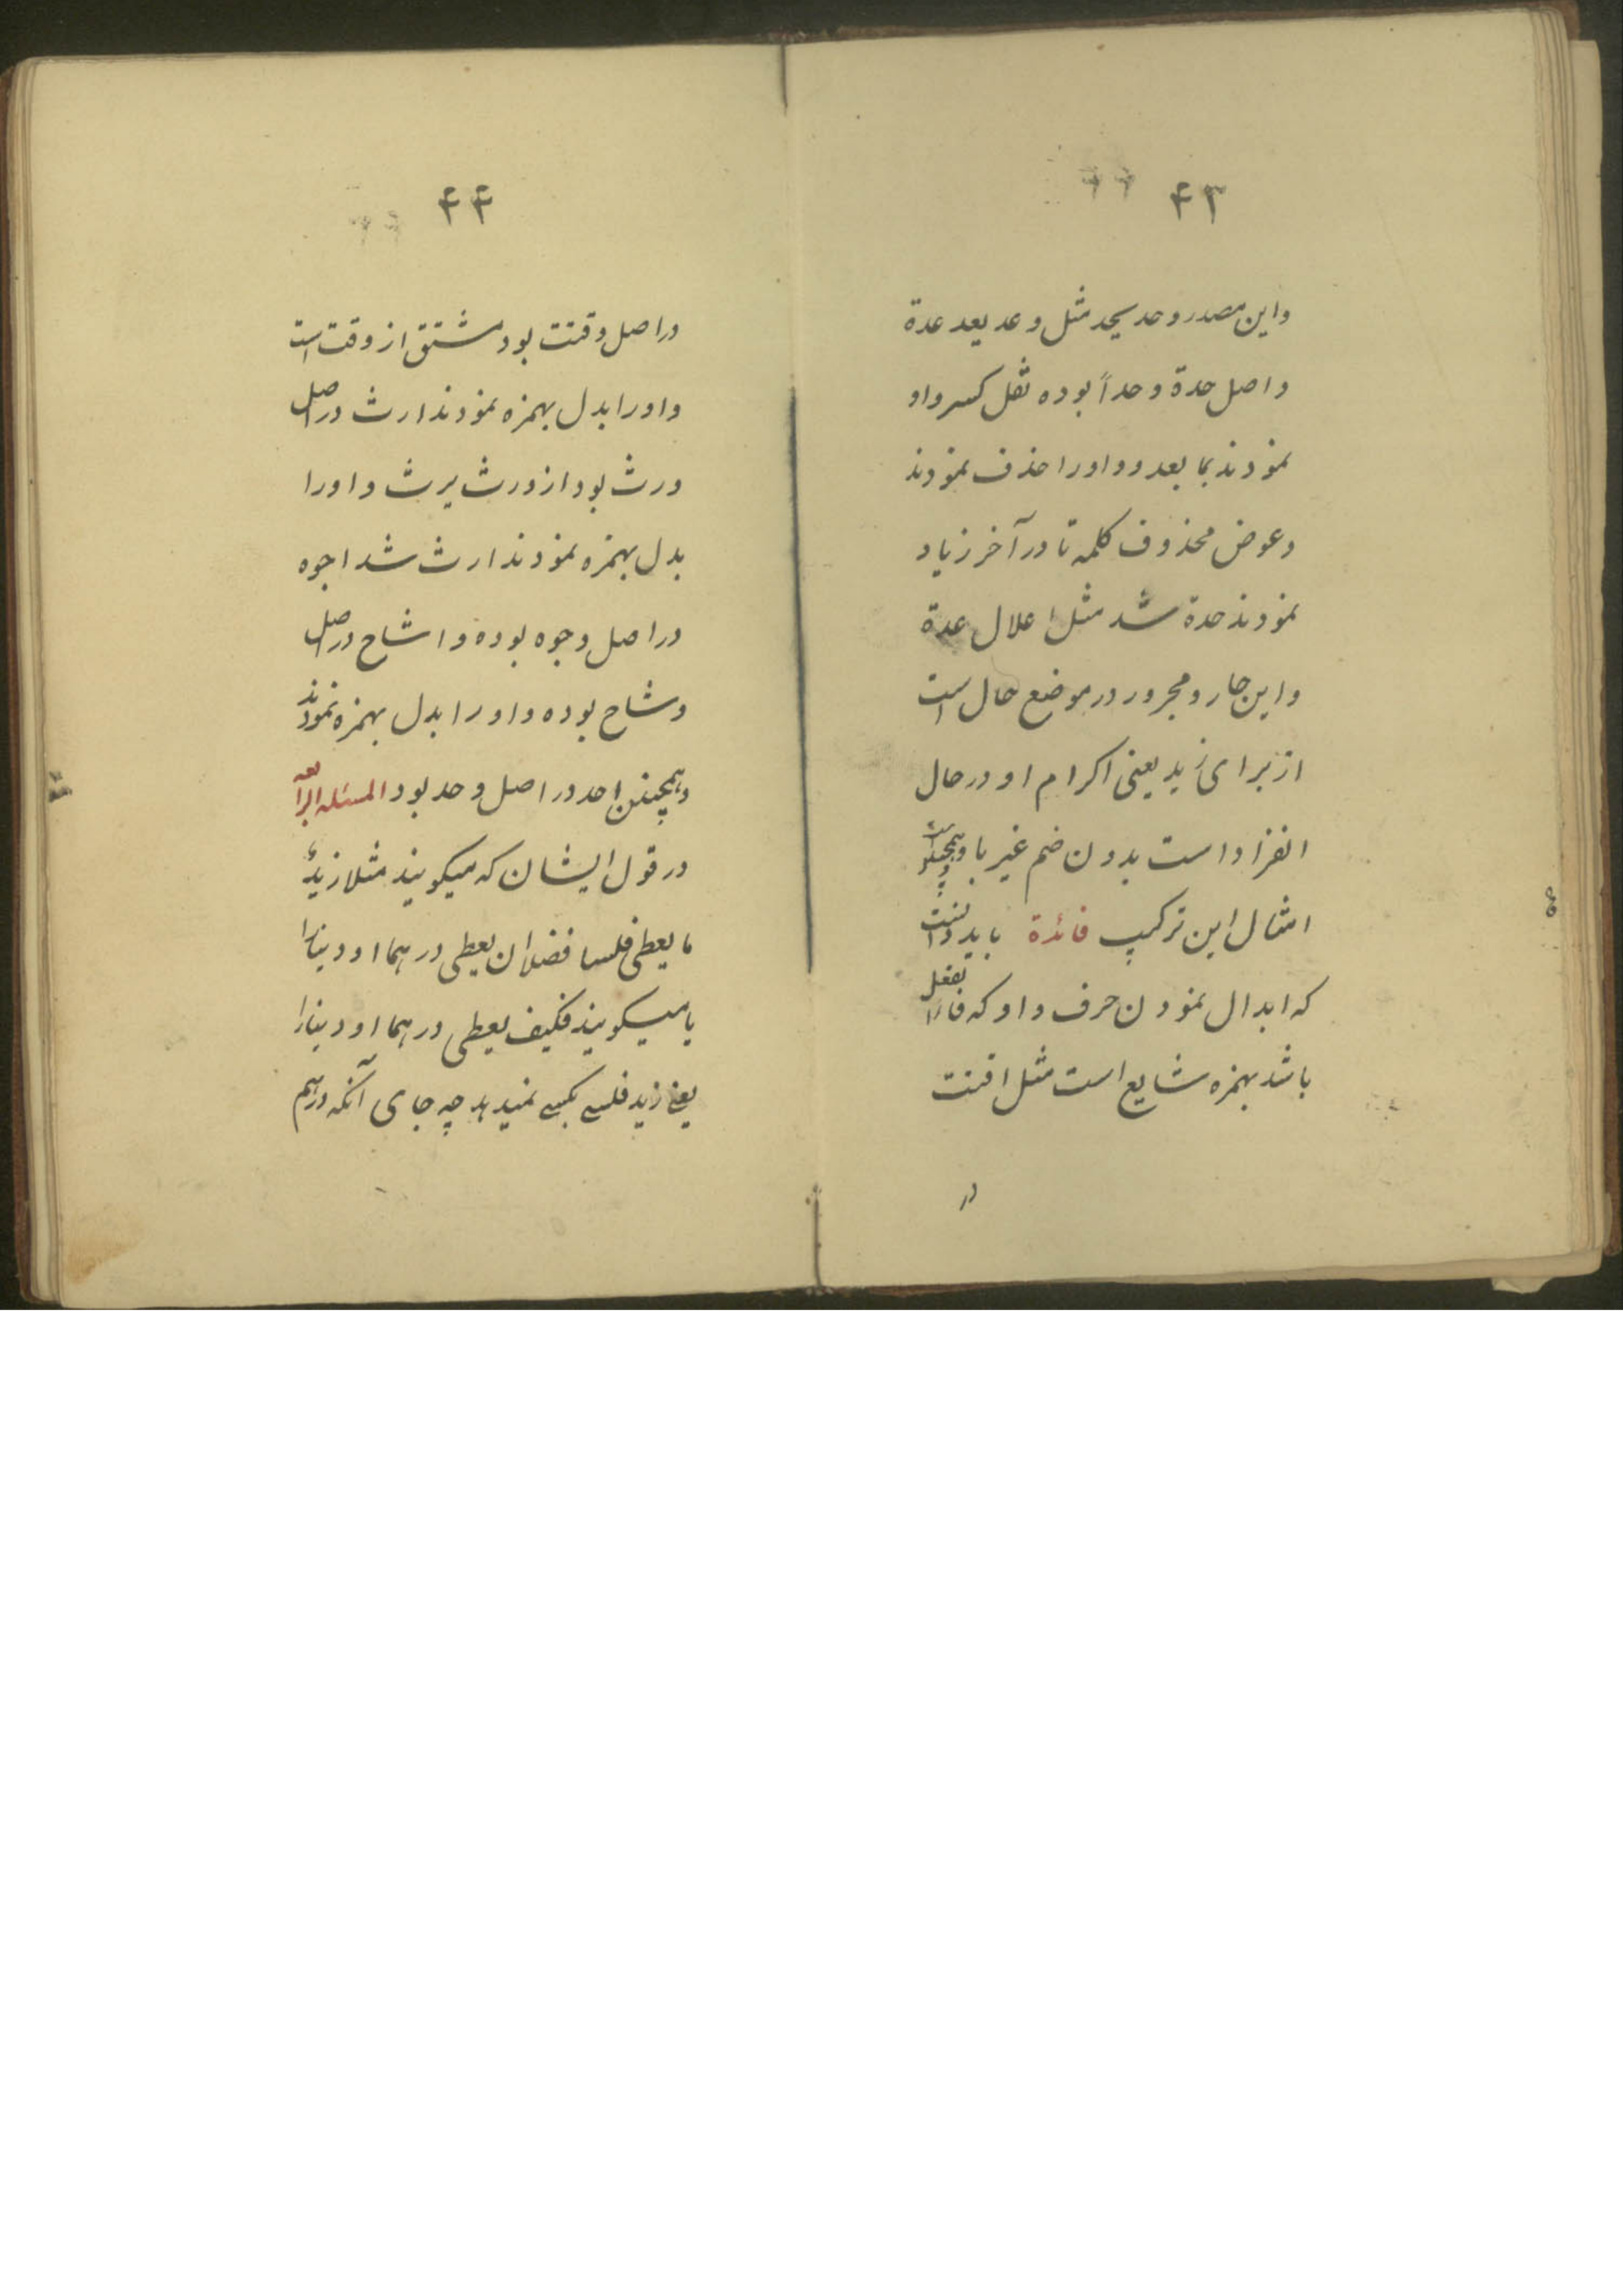 ۴۳
واین مصدر وحد یحد مثل وعد یعد عدة
واصل حدة وحداً بوده نقل کسر واو
نمودند بما بعد و واو را حذف نمودند
وعوض محذوف کلمه تا در آخر زیاد
نمودند حدة شد مثل اعلال عدة
واین جار و مجرور در موضع حال است
از برای زید یعنی اکرام او در حال
انفراد است بدون ضم غیر با و همچنین است
امثال این ترکیب فائدة باید دانست
که ابدال نمودن حرف واو که فاء الفعل
باشد بهمزه شایع است مثل اقتت
در
۴۴
در اصل وقتت بود مشتق از وقت است
واو را بدل بهمزه نمودند ارث در اصل
ورث بود از ورث یرث واو را
بدل بهمزه نمودند ارث شد اجوه
در اصل وجوه بوده و اشاح در اصل
وشاح بوده واو را بدل بهمزه نمودند
وهمچنین احد در اصل وحد بود المسئله الرابعه
در قول ایشان که میکویند مثلا زیدٌ
ما یعطی فلسا فضلا ان یعطی درهما او دینارا
یا میکویند فکیف یعطی درهما او دینارا
یعنی زید فلسی بکسی نمیدهد چه جای آنکه درهم